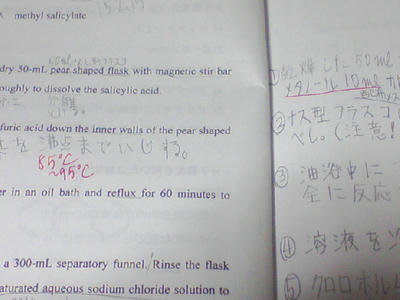 methyl salicylate
50mlなし形フラスコ
dry 50-mL pear shaped flask with magnetic stir bar
oughly to dissolve the salicylic acid.
furic acid down the inner walls of the pear shaped
を沸点まで
85℃
~95℃
er in an oil bath and reflux for 60 minutes to
a 300-mL separatory funnel. Rinse the flask
aturated aqueous sodium chloride solution to
①乾燥した50ml
メタノール10ml
②ナス型フラスコ
べし。(注意!
③油浴中に
全に反応
④溶液を
⑤クロロホルム